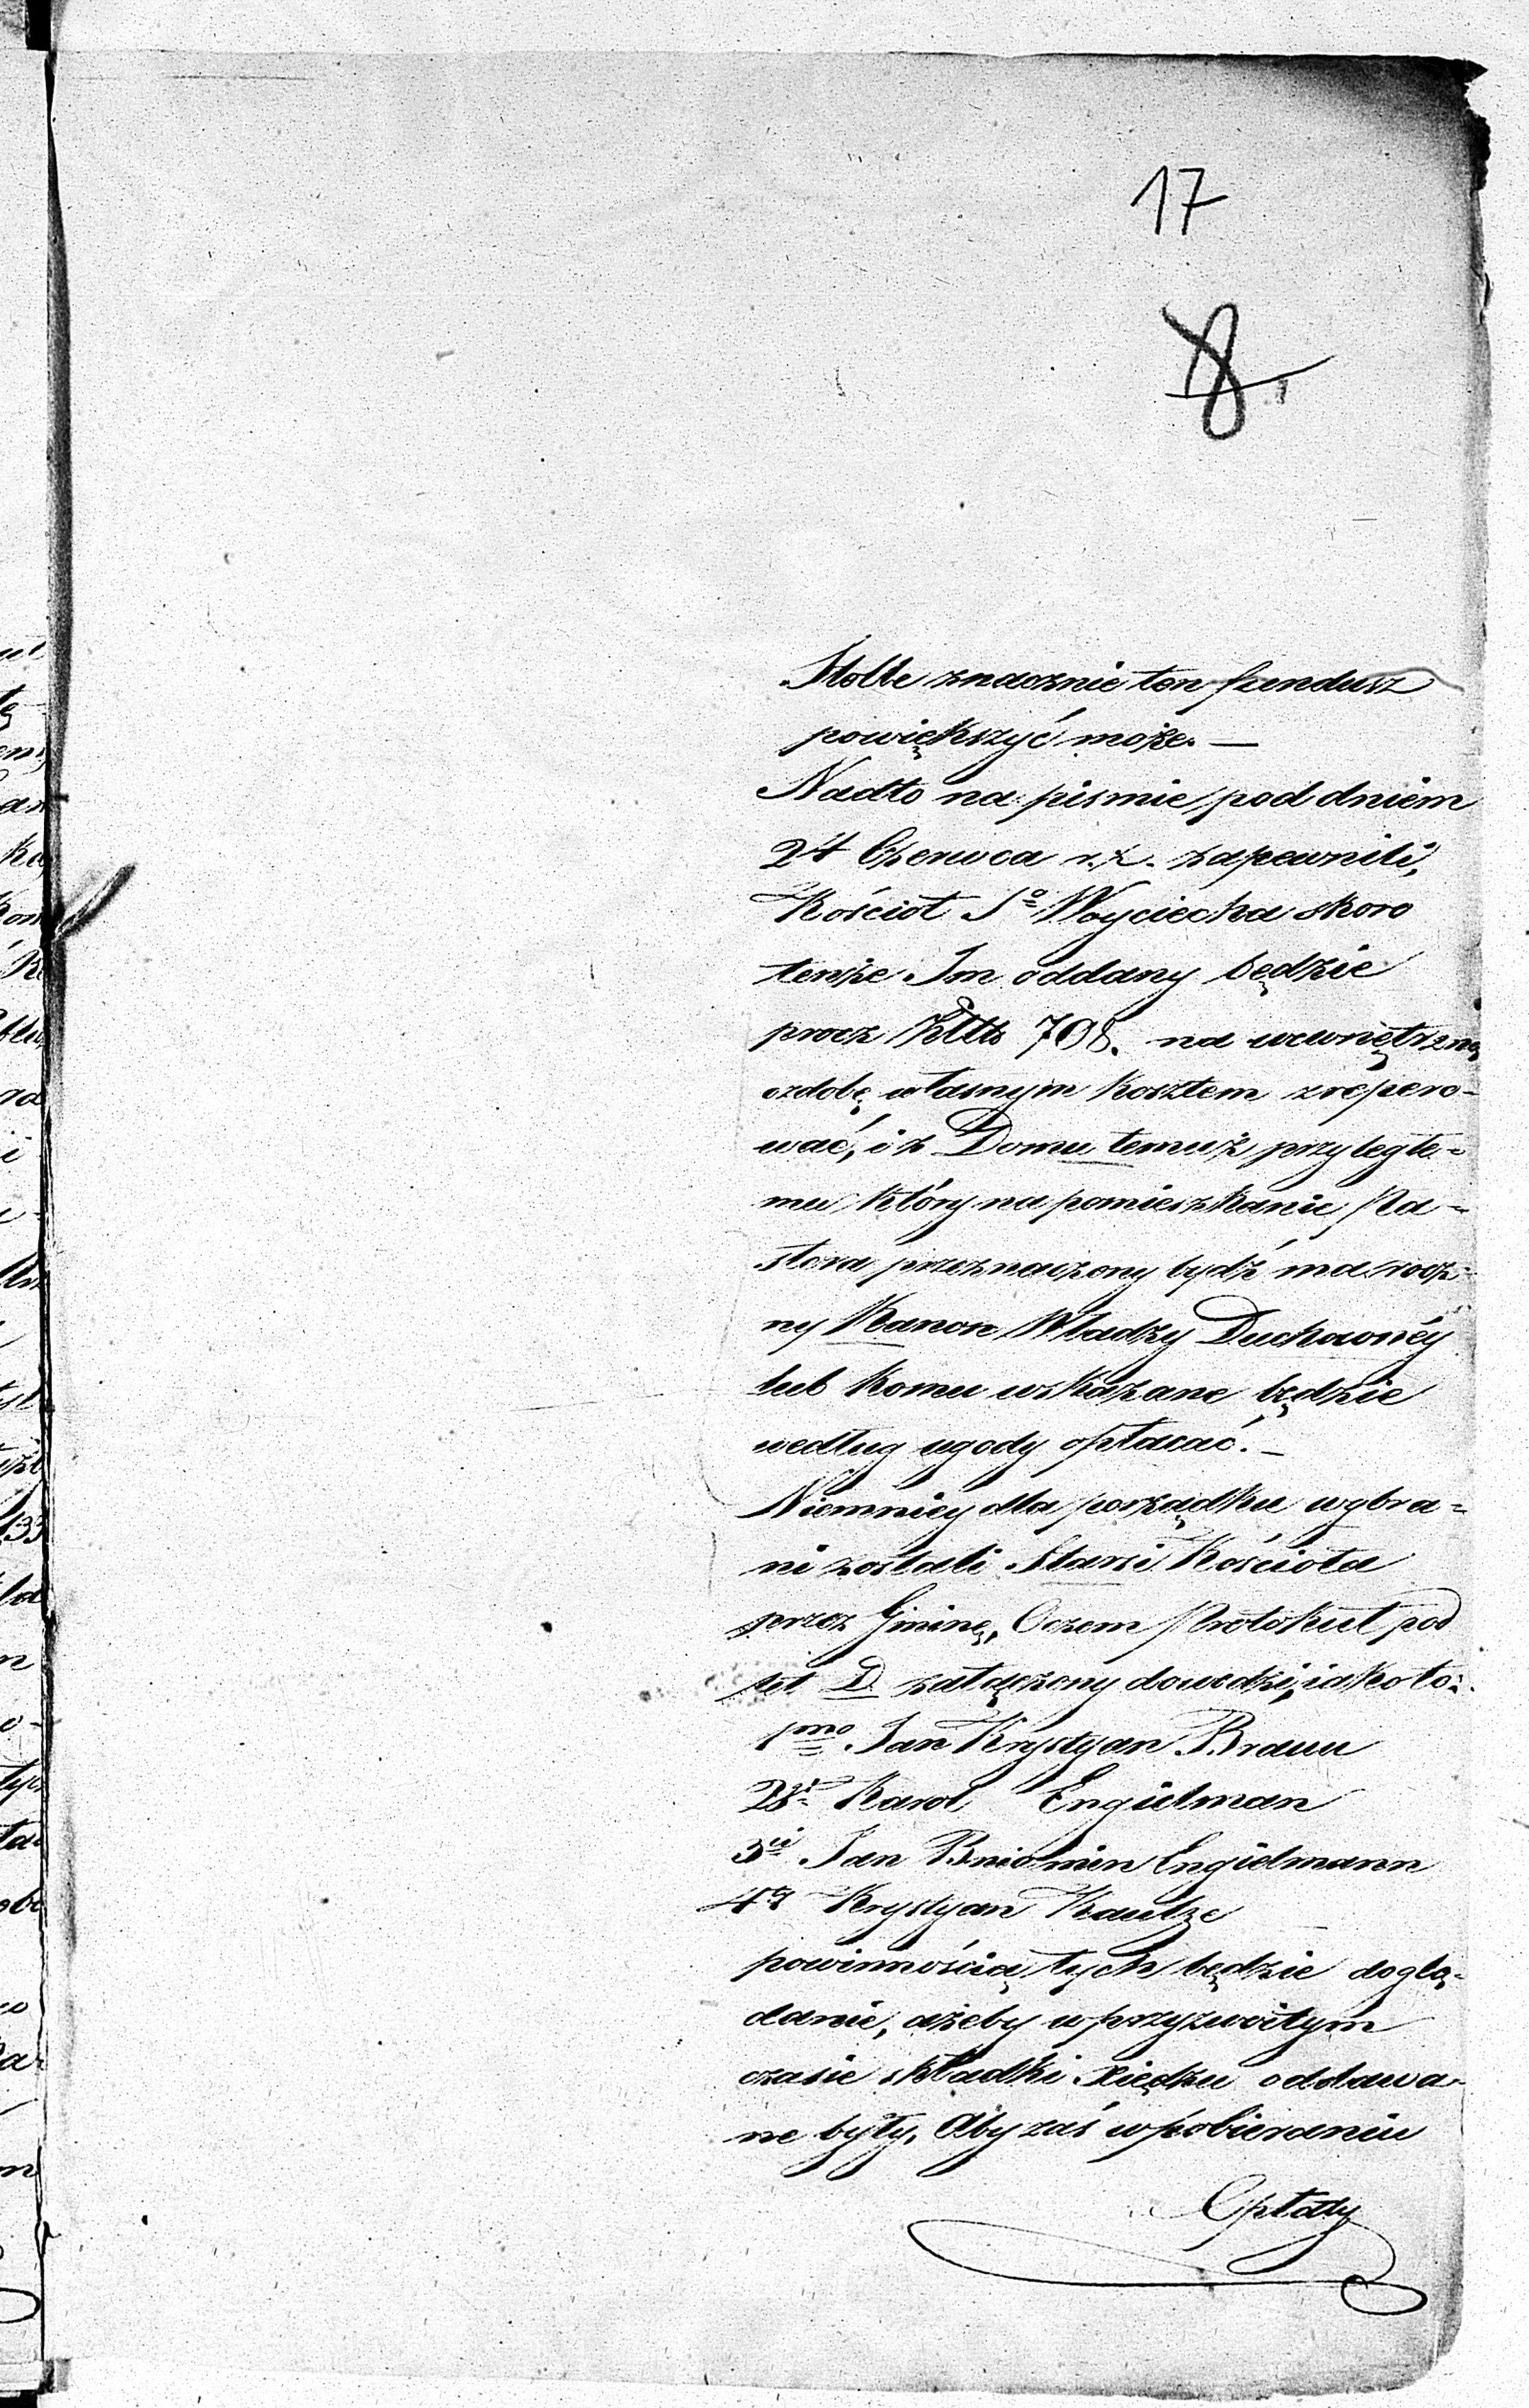 17
8
Stolle znacznie ten fundusz
powiększyć może. —
Nadto na pismie pod dniem
24 Czerwca r.z. zapewnili,
Kościoł So Woyciecha skoro
tenże Im oddany będzie
procz 708. na wewnętrzną
ozdobę własnym kosztem zrepero-
wać, i z Domu temuż przyległe-
mu który na pomieszkanie Pa-
stora przeznaczony bydź ma rocz-
ny Kanon Władzy Duchownéy
lub komu wskazane będzie
według ugody opłacać. —
Niemniey dla porządku wybra-
ni zostali Starsi Kościoła
przez Gminę, Oczem Protokuł pod
lit D załączony dowodzi, iako to:
1mo Jan Krystyan Braun
2di Karol Engielman
3ii Jan Beniamin Engielmann
4to Krystyan Kautze
powinnością tych będzie doglą-
danie, ażeby w przyzwoitym
czasie składki Xiędzu oddawa-
ne były, Aby zaś w pobieraniu
Opłaty